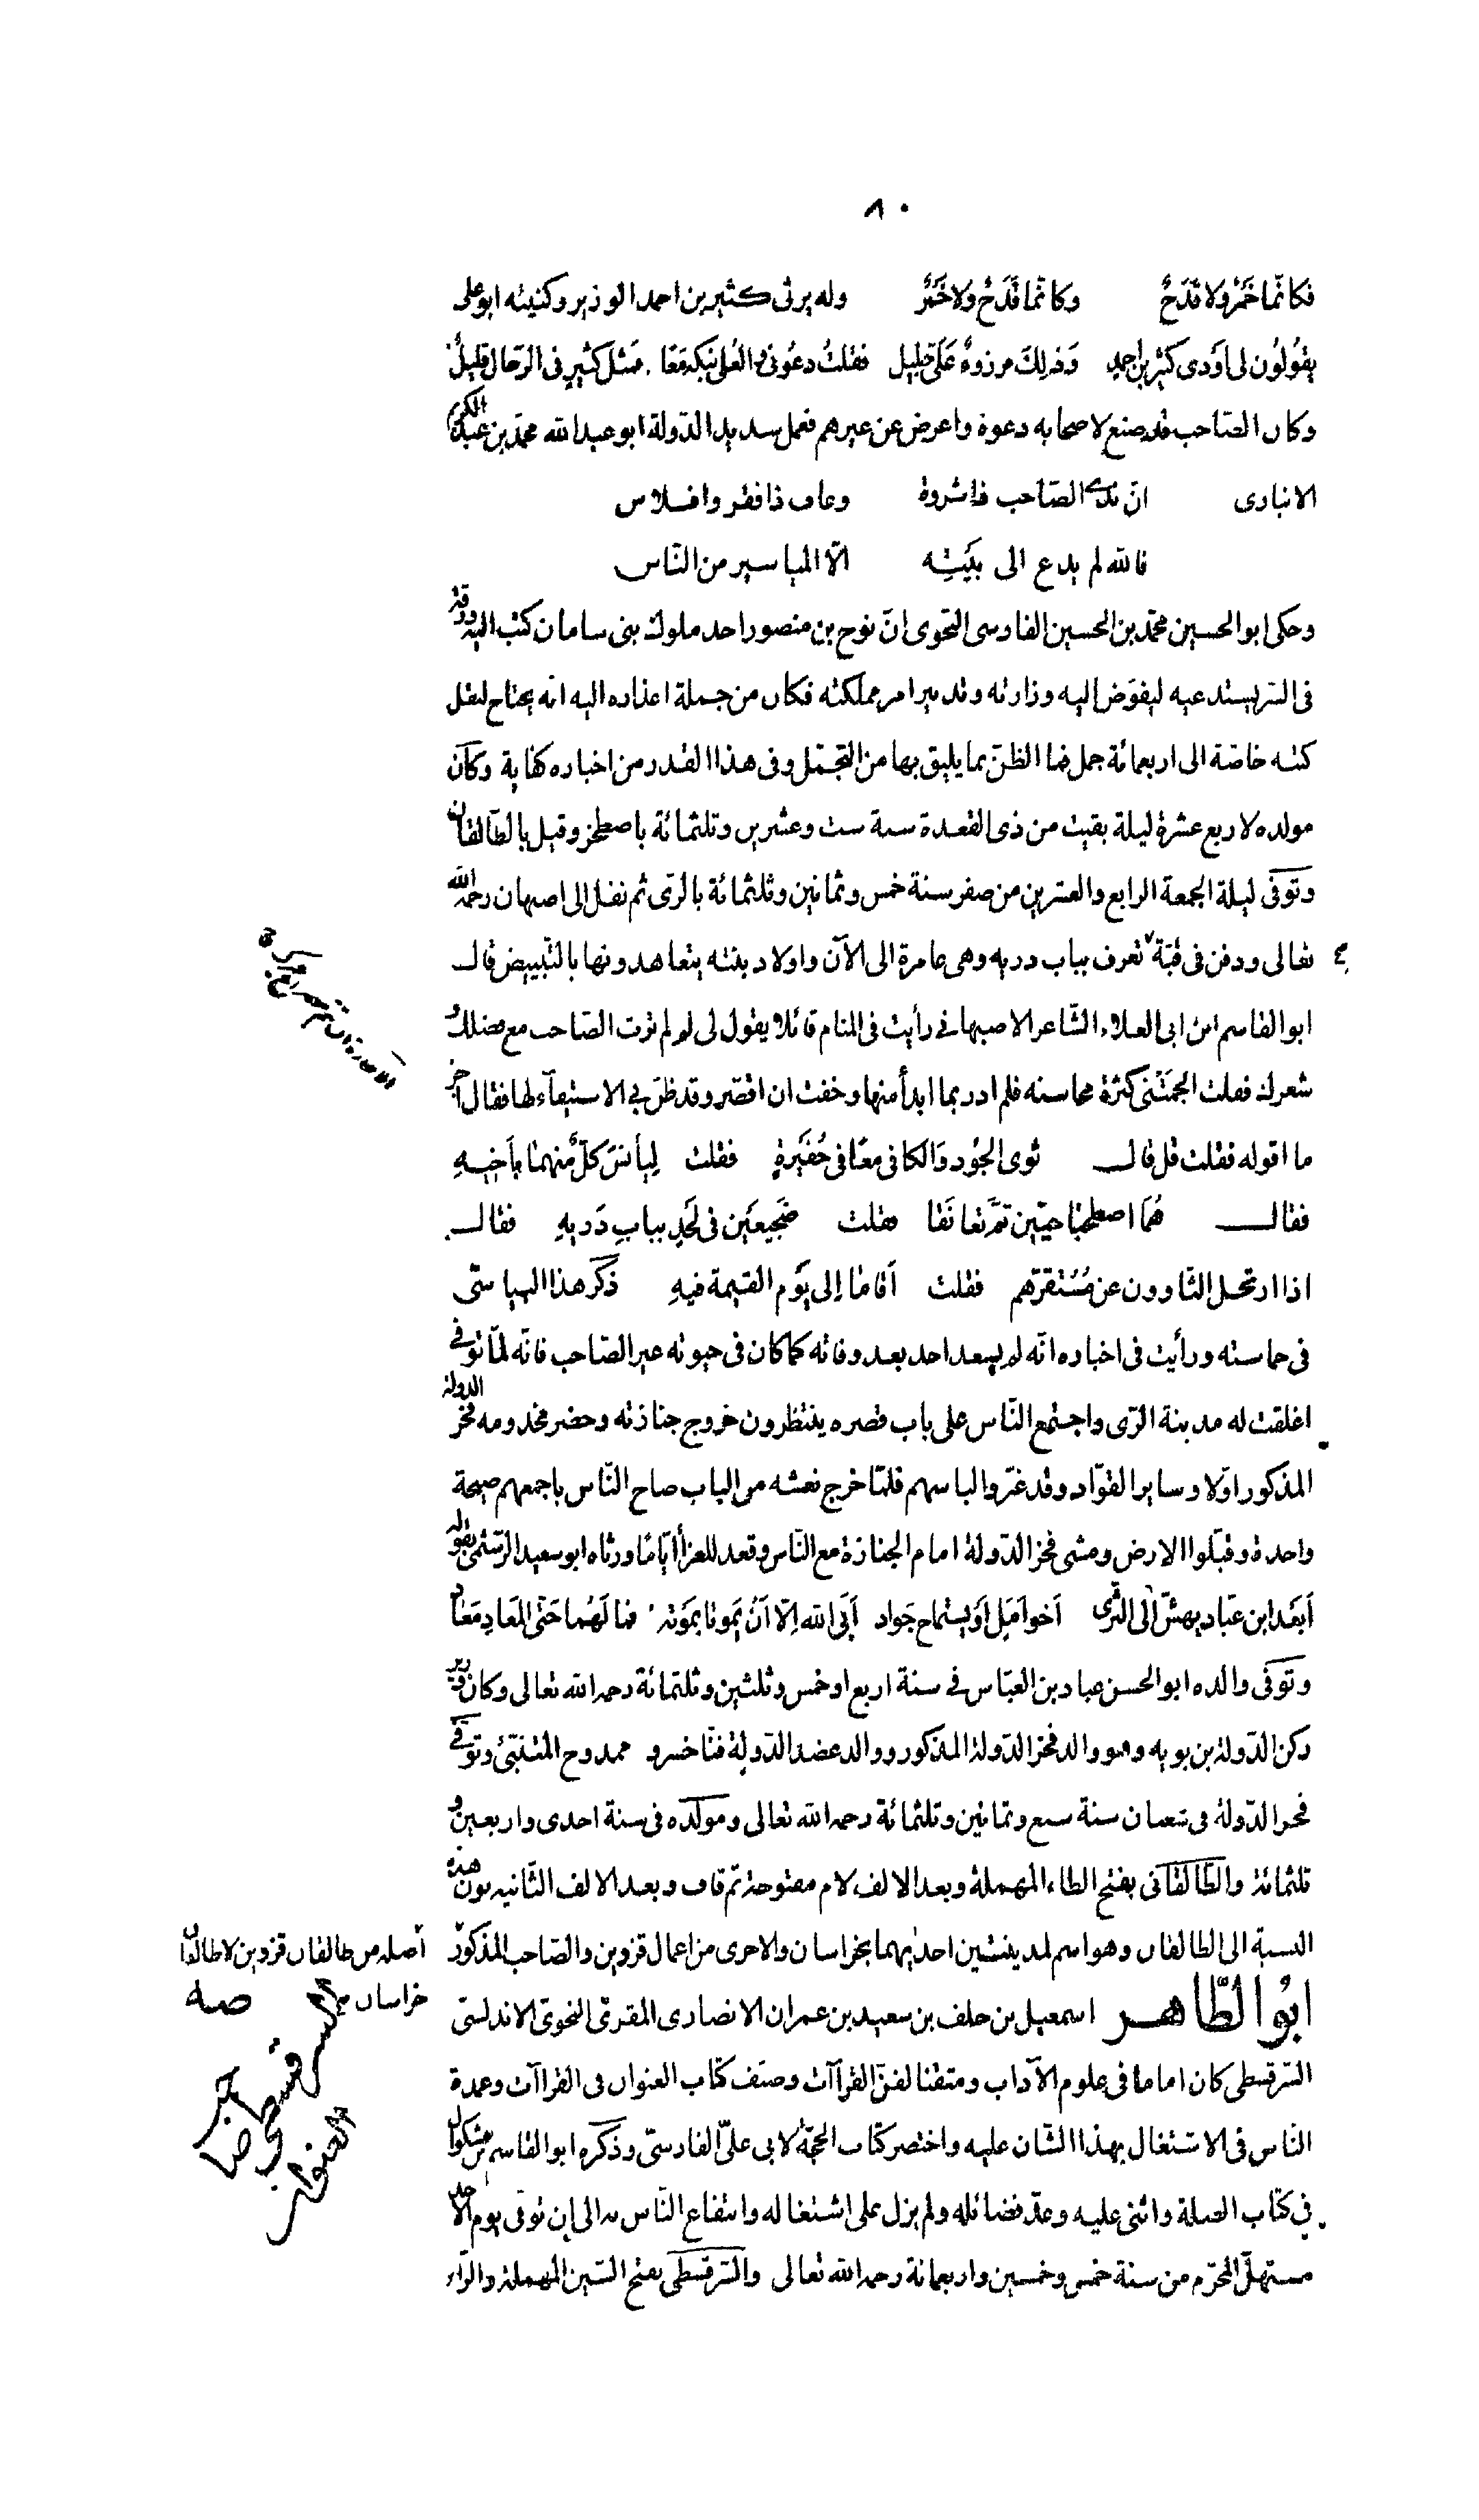 ٨٠
فكانّما خَمْرٌ ولا قدَحٌ وكانّما قَدَحٌ ولا خَمْرٌ وله يرثى كثير بن احمد الوزير وكنيته ابو على
يقُولُون لى اَودى كثير بن احمدٍ وَذلِكَ مرزوءٌ عَلىّ جليل فقلتُ دعُونى والعُلى نبكه مَعًا فمثل كثيرٍ فى الرّجال قليلٌ
وكان الصّاحب قد صنع لاصحابه دعوة واعرض عن غيرهم فعمل سديد الدّولة ابو عبد الله محمّد بن عبد الكريم
الانبارى انّ الصّاحب ذا ثروة وعاف ذا فقر وافلاس
فالله لم يدع الى بَيتِه الّا المياسير من النّاس
وحكى ابو الحسين محمّد بن الحسين الفارسى النّحوى انّ نوح بن منصور احد ملوك بنى سامان كتب اليه ورقة
فى السّر يستدعيه ليفوّض اليه وزارته وتدبير امر مملكته فكان من جملة اعذاره اليه انه يحتاج لنقل
كتبه خاصّة الى اربعمائة جمل فما الظنّ بما يليق بها من التجمّل وفى هذا القدر من اخباره كفاية وكان
مولده لاربع عشرة ليلة بقيت من ذى القعدة سنة ست وعشرين وثلثمائة باصطخر وقيل بالطّالقان
وتوفّى ليلة الجمعة الرابع والعشرين من صفر سنة خمس وثمانين وثلثمائة بالرّى ثم نقل الى اصبهان رحمه الله
تعالى ودفن فى قبّة تعرف بباب دريه وهى عامرة الى الآن واولاد بنته يتعاهدونها بالتّبييض قال
ابو القاسم ابن ابى العلاء الشّاعر الاصبهانى رأيت فى المنام قائلا يقول لى لو لم ترث الصّاحب مع فضلك و
شعرك فقلت الجمَتْنى كثرة محاسنه فلم ادر بما ابدأ منها وخفت ان اقصّر وقد ظنّ بى الاستيفاء لها فقال اجز
ما اقوله فقلت قل قال ثوى الجُود وَالكافى معًا فى حُفَيرةٍ فقلت لِيأنسَ كلٌّ منهما بأخيهِ
فقال هُمَا اصطحبَا حيّين ثمّ تعانَقا فقلت ضَجيعَين فى لَحدٍ ببابِ دَريهِ فقال
اذا ارتحل الثّاوون عن مُستقرّهم فقلت اَقاما اِلى يَوم القيمة فيهِ ذكر هذا البياسىّ
فى حماسته ورأيت فى اخباره انّه لم يسعد احد بعد وفاته كما كان فى حيوته غير الصّاحب فانّه لمّا توفّى
اغلقت له مدينة الرّى واجتمع النّاس على باب قصره ينتظرون خروج جنازته وحضر مخدومه فخر الدولة
المذكور اوّلا وساير القوّاد وقد غيّروا لباسهم فلمّا خرج نعشه من الباب صاح النّاس باجمعهم صيحة
واحدة وقبّلوا الارض ومشى فخر الدّولة امام الجنازة مع النّاس وقعد للعزاء ايّامًا ورثاه ابو سعيد الرّستمى بقوله
اَبَعْد ابن عبّاد يهشّ الى السّرى اَخو اَمَلٍ اَو يستماح جَواد اَبَى الله اِلّا اَنْ يَموتا بمَوته فما لَهُما حَتّى المَعادِ مَعاد
وتوفّى والده ابو الحسن عباد بن العبّاس فى سنة اربع او خمس وثلثين وثلثمائة رحمه الله تعالى وكان وزير
ركن الدّولة بن بويه وهو والد فخر الدّولة المذكور ووالد عضد الدّولة فنّا خسرو ممدوح المتنبّئ وتوفّى
فخر الدّولة فى شعبان سنة سبع وثمانين وثلثمائة رحمه الله تعالى ومولده فى سنة احدى واربعين و
ثلثمائة والطّالقانى بفتح الطاء المهملة وبعد الالف لام مفتوحة ثمّ قاف وبعد الالف الثّانيه نون هذه
النسبة الى الطالقان وهو اسم لمدينتين احديهما بخراسان والاخرى من اعمال قزوين والصّاحب المذكور
اصله من طالقان قزوين لا طالقان
خراسان صه
ابُو الطّاهر اسمعيل بن خلف بن سعيد بن عمران الانصارى المقرئ النحوىّ الاندلسىّ
السّرقسطى كان اماما فى علوم الآداب ومتقنا لفنّ القراآت وصنّف كتاب العنوان فى القراآت وعمدة
الناس فى الاشتغال بهذا الشان عليه واختصر كتاب الحجّة لابى علىّ الفارسىّ وذكره ابو القاسم بن بشكوال
فى كتاب الصلة واثنى عليه وعدّ فضائله ولم يزل على اشتغاله وانتفاع النّاس به الى ان توفى يوم الاحد
مستهلّ المحرّم من سنة خمس وخمسين واربعمائة رحمه الله تعالى والسّرقسطى بفتح السّين المهملة والرّاء